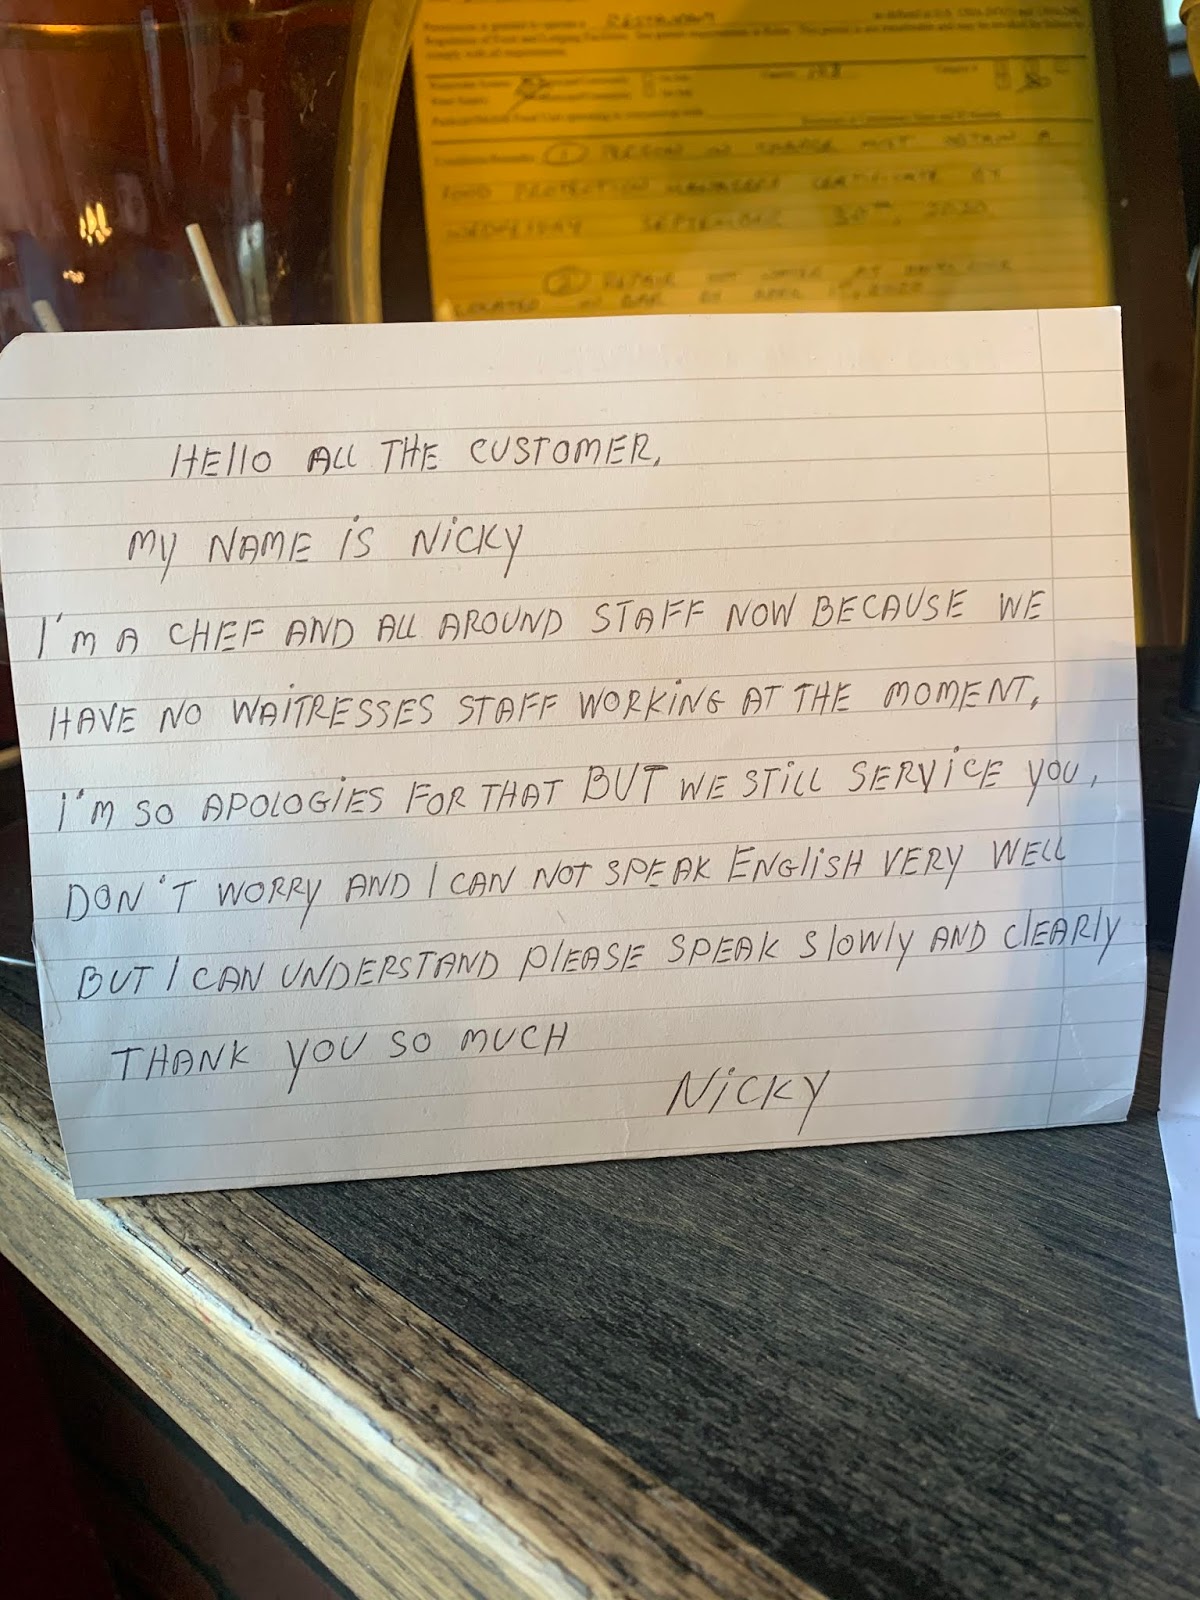 RESTAURANT
① PERSON IN CHARGE MUST OBTAIN A
FOOD PROTECTION MANAGERS CERTIFICATE BY
WEDNESDAY SEPTEMBER 30TH, 2020
② REPAIR HOT WATER AT
LOCATED IN BAR BY APRIL 1ST, 2020
HEllO ALL THE CUSTOMER,
MY NAME iS NiCKY
I'M A CHEF AND ALL AROUND STAFF NOW BECAUSE WE
HAVE NO WAiTRESSES STAFF WORKiNG AT THE MOMENT,
I'M SO APOLOGiES FOR THAT BUT WE STiLL SERViCE YOU,
DON'T WORRY AND I CAN NOT SPEAK ENGLiSH VERY WELL
BUT I CAN UNDERSTAND PlEASE SPEAK SlOWlY AND ClEARlY
THANK YOU SO MUCH
NiCKY